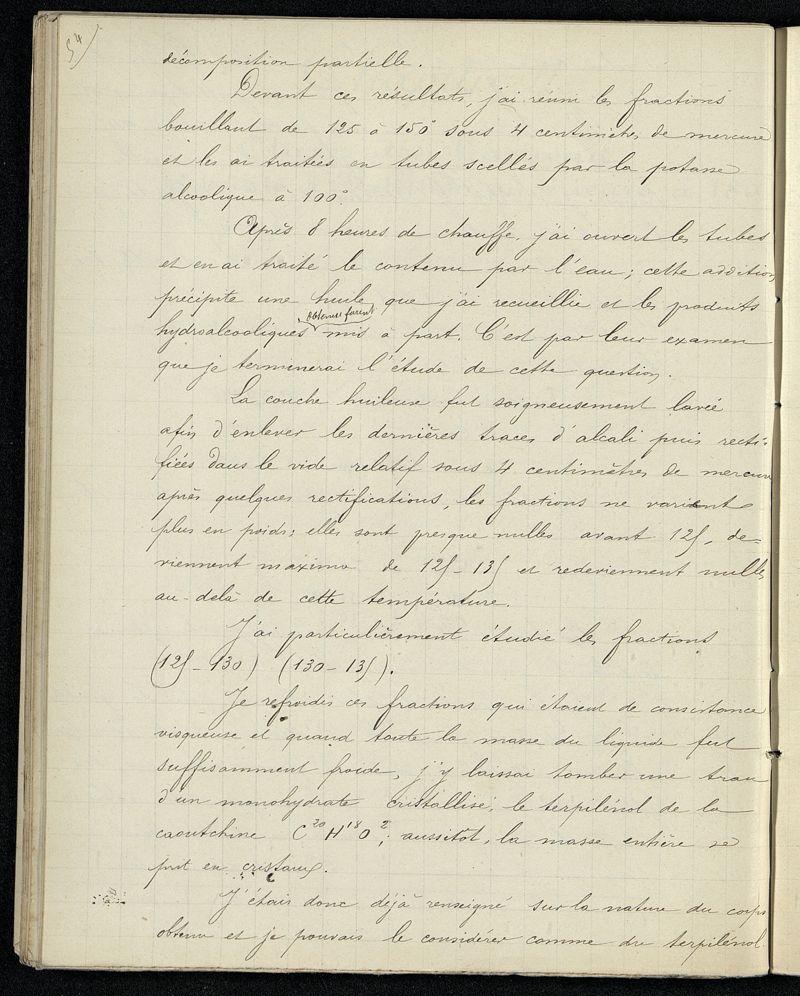 54)
décomposition partielle.
Devant ces résultats, j'ai réuni les fractions
bouillant de 125 à 150° sous 4 centimètres de mercure
et les ai traitées en tubes scellés par la potasse
alcoolique à 100°.
Après 8 heures de chauffe j'ai ouvert les tubes
et en ai traité le contenu par l'eau ; cette addition
précipite une huile que j'ai recueillie et les produits
obtenus furent
hydroalcooliques mis à part. C'est par leur examen
que je terminerai l'étude de cette question.
La couche huileuse fut soigneusement lavée
afin d'enlever les dernières traces d'alcali puis recti-
fiées dans le vide relatif sous 4 centimètres de mercure
après quelques rectifications, les fractions ne varient
plus en poids ; elles sont presque nulles avant 125, de-
viennent maxima de 125-135 et redeviennent nulles
au-delà de cette température.
J'ai particulièrement étudié les fractions
(125-130) (130-135).
Je refroidis ces fractions qui étaient de consistance
visqueuse et quand toute la masse du liquide fut
suffisamment froide, j'y laissai tomber une trace
d'un monohydrate cristallisé, le terpilénol de la
caoutchine C²⁰H¹⁸O² ; aussitôt, la masse entière se
prit en cristaux.
J'étais donc déjà renseigné sur la nature du corps
obtenu et je pouvais le considérer comme du terpilénol